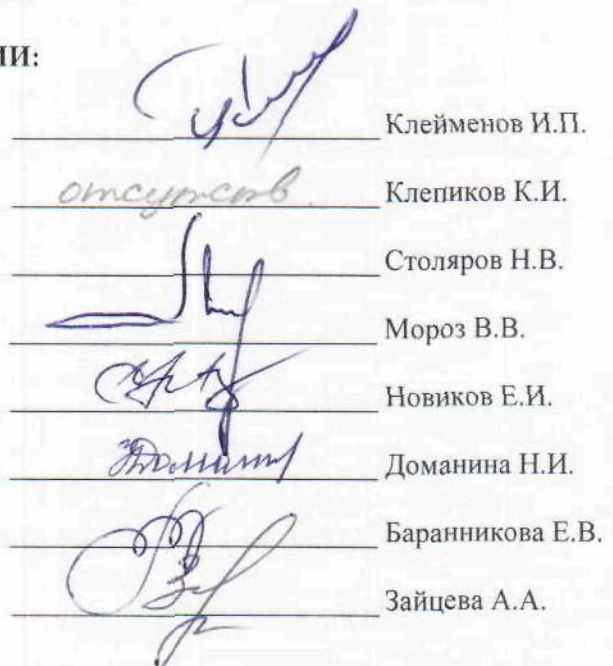 ИИ:
Клейменов И.П.
отсутств. Клепиков К.И.
Столяров Н.В.
Мороз В.В.
Новиков Е.И.
Доманина Н.И.
Баранникова Е.В.
Зайцева А.А.